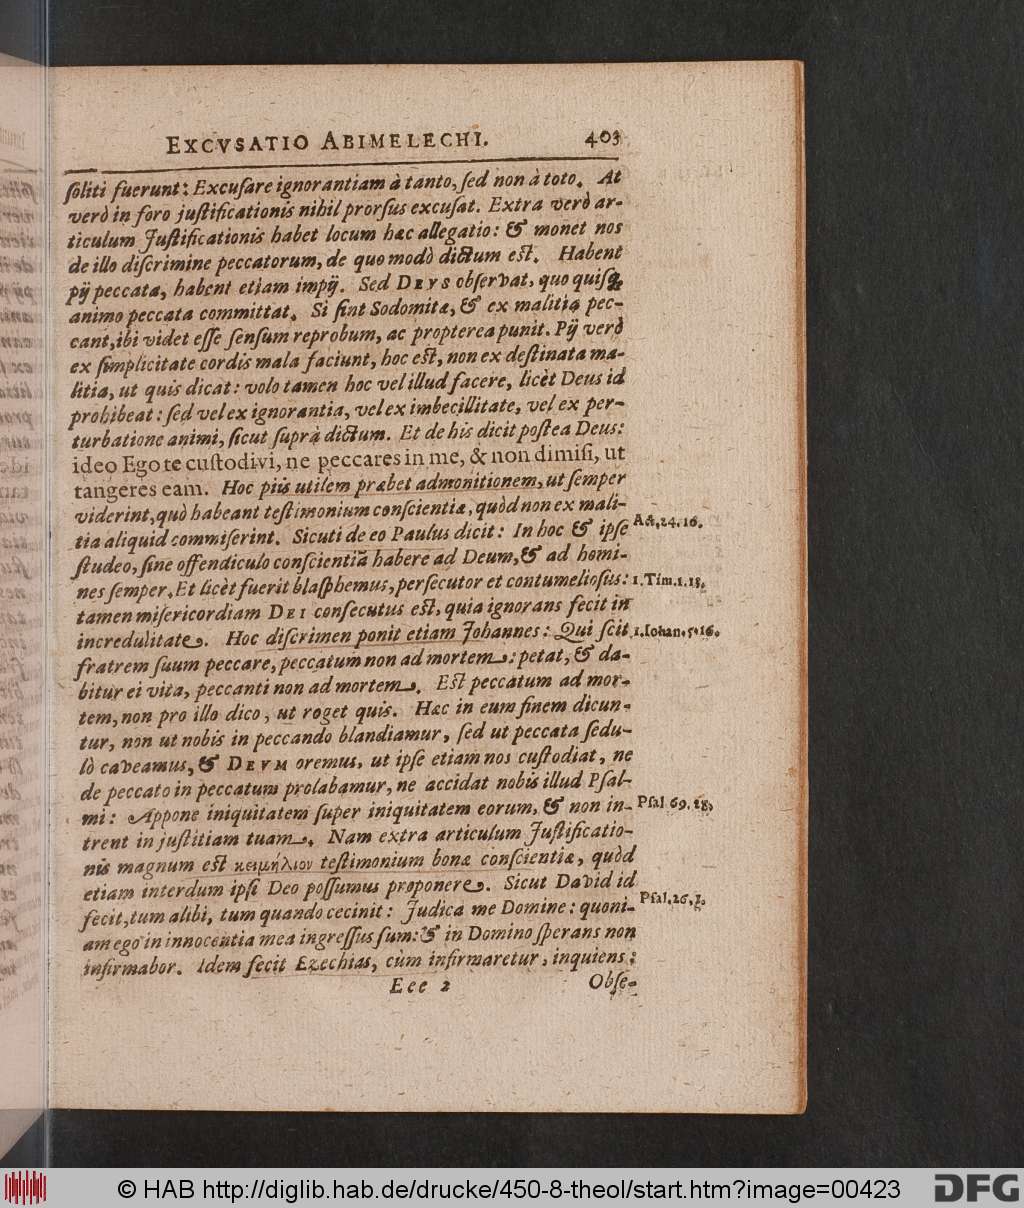 EXCVSATIO ABIMELECHI. 403
ſoliti fuerunt: Excuſare ignorantiam à tanto, ſed non à toto. At
verò in foro juſtificationis nihil prorſus excuſat. Extra verò ar-
ticulum Juſtificationis habet locum hæc allegatio: & monet nos
de illo diſcrimine peccatorum, de quo modò dictum eſt. Habent
pij peccata, habent etiam impij. Sed DEVS obſervat, quo quiſq;
animo peccata committat. Si ſint Sodomitæ, & ex malitia pec-
cant, ibi videt eſſe ſenſum reprobum, ac propterea punit. Pij verò
ex ſimplicitate cordis mala faciunt, hoc eſt, non ex deſtinata ma-
litia, ut quis dicat: volo tamen hoc vel illud facere, licèt Deus id
prohibeat: ſed vel ex ignorantia, vel ex imbecillitate, vel ex per-
turbatione animi, ſicut ſuprà dictum. Et de his dicit poſtea Deus:
ideo Ego te cuſtodivi, ne peccares in me, & non dimiſi, ut
tangeres eam. Hoc piis utilem præbet admonitionem, ut ſemper
viderint, quò habeant teſtimonium conſcientiæ, quòd non ex mali-
tia aliquid commiſerint. Sicuti de eo Paulus dicit: In hoc & ipſe Act. 24. 16.
ſtudeo, ſine offendiculo conſcientiã habere ad Deum, & ad homi-
nes ſemper. Et licèt fuerit blaſphemus, perſecutor et contumelioſus: 1. Tim. 1. 18.
tamen miſericordiam DEI conſecutus eſt, quia ignorans fecit in
incredulitate. Hoc diſcrimen ponit etiam Johannes: Qui ſcit 1. Iohan. 5. 16.
fratrem ſuum peccare, peccatum non ad mortem: petat, & da-
bitur ei vita, peccanti non ad mortem. Eſt peccatum ad mor-
tem, non pro illo dico, ut roget quis. Hæc in eum finem dicun-
tur, non ut nobis in peccando blandiamur, ſed ut peccata ſedu-
lò caveamus, & DEVM oremus, ut ipſe etiam nos cuſtodiat, ne
de peccato in peccatum prolabamur, ne accidat nobis illud Pſal-
mi: Appone iniquitatem ſuper iniquitatem eorum, & non in- Pſal. 69. 28.
trent in juſtitiam tuam. Nam extra articulum Juſtificatio-
nis magnum eſt κειμήλιον teſtimonium bonæ conſcientiæ, quòd
etiam interdum ipſi Deo poſſumus proponere. Sicut David id
fecit, tum alibi, tum quando cecinit: Judica me Domine: quoni- Pſal. 26. 1.
am ego in innocentia mea ingreſſus ſum: & in Domino ſperans non
infirmabor. Idem fecit Ezechias, cùm infirmaretur, inquiens:
Eee 2 Obſe-
© HAB http://diglib.hab.de/drucke/450-8-theol/start.htm?image=00423 DFG